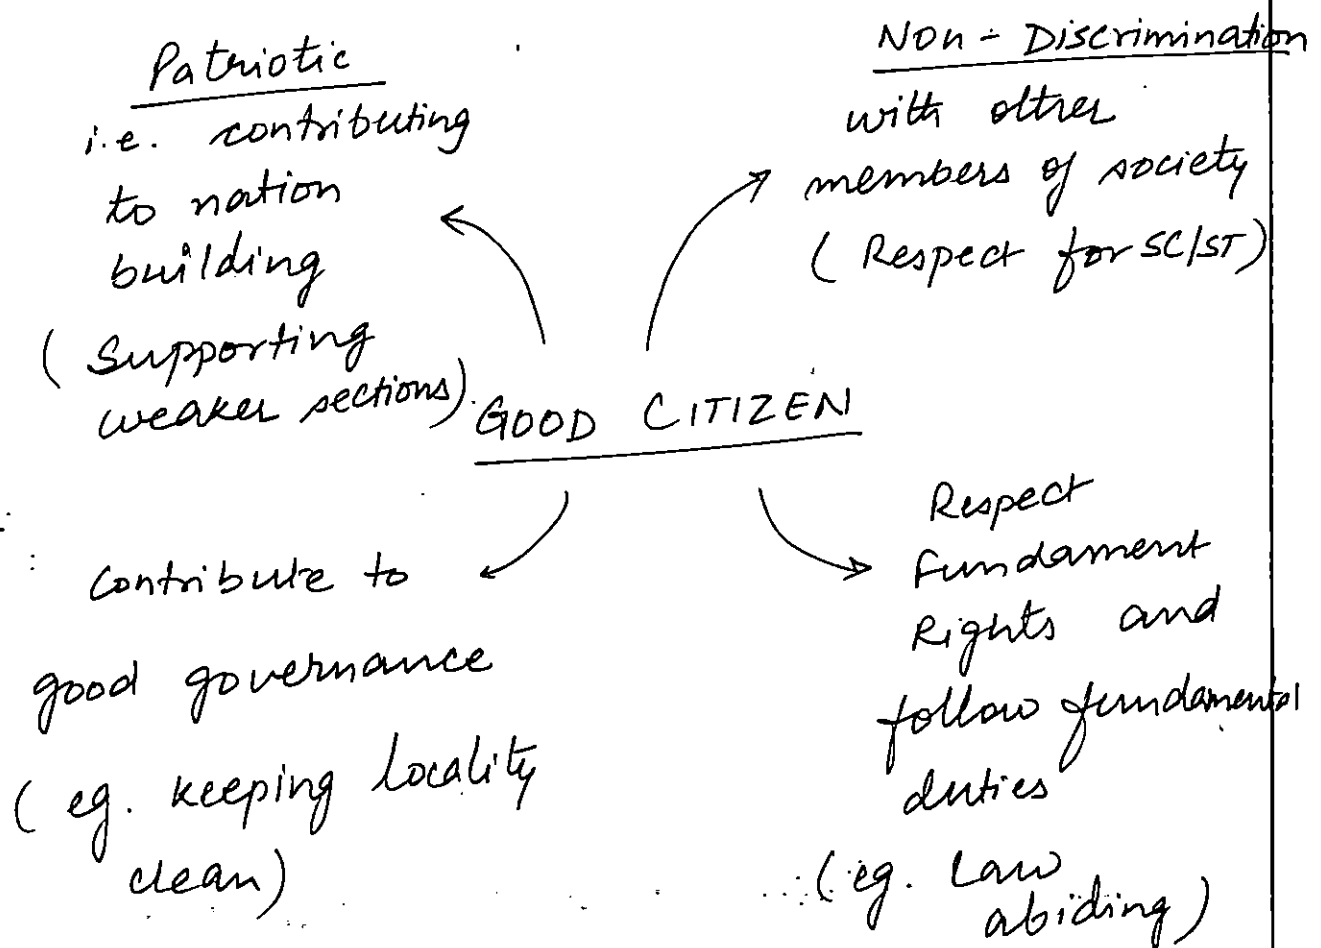 Patriotic
i.e. contributing
to nation
building
(Supporting
weaker sections)
Non - Discrimination
with other
members of society
(Respect for SC/ST)
GOOD CITIZEN
Contribute to
good governance
(eg. keeping locality
clean)
Respect
Fundament
Rights and
follow fundamental
duties
(eg. Law
abiding)